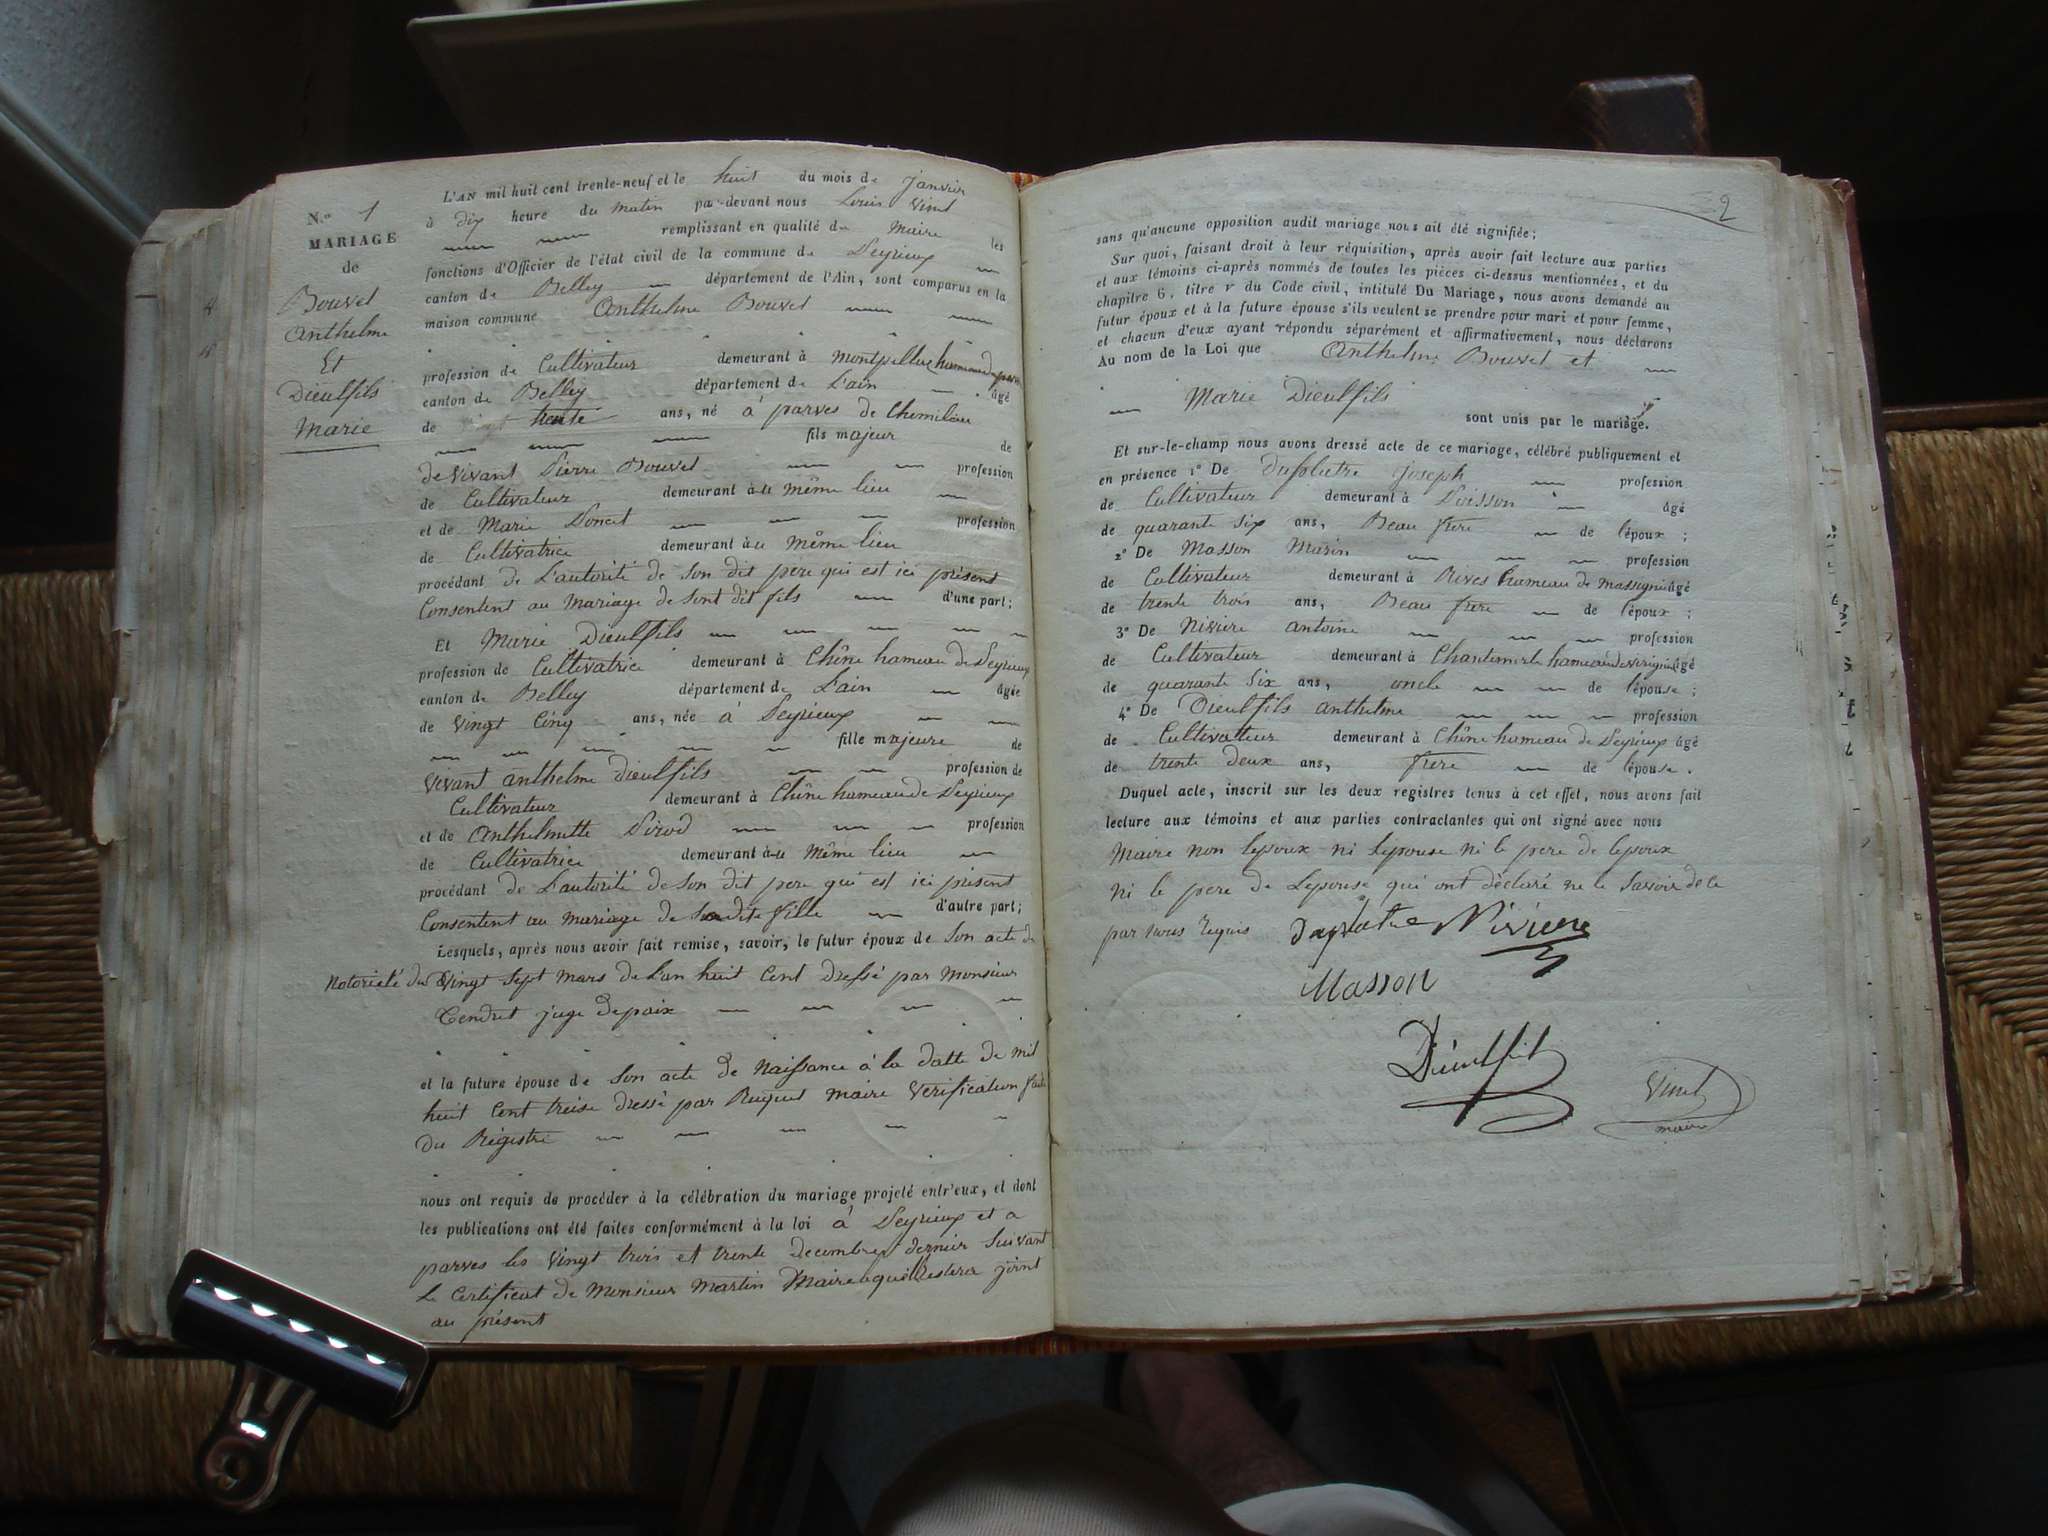 N.o 1
MARIAGE
de
Bouvet
Anthelme
Et
Dieulfils
Marie
L'AN mil huit cent trente-neuf et le huit du mois de janvier
à dix heure du matin par-devant nous Louis Vinet
remplissant en qualité de Maire les
fonctions d'Officier de l'état civil de la commune de Peyrieux
canton de Belley département de l'Ain, sont comparus en la
maison commune Anthelme Bouvet
profession de Cultivateur demeurant à montpellue hameau de parves
canton de Belley département de L'ain âgé
de trente ans, né à parves de Chemilieu
fils majeur de
de vivant Pierre Bouvet profession
de Cultivateur demeurant à u même lieu
et de Marie Poncet profession
de Cultivatrice demeurant à u même lieu
procédant de L'autorité de Son dit pere qui est ici présent
Consentent au mariage de Sont dit fils d'une part;
Et Marie Dieulfils
profession de Cultivatrice demeurant à Chêne hameau de Peyrieux
canton de Belley département de L'ain âgée
de Vingt Cinq ans, née à Peyrieux
fille majeure de
Vivant anthelme Dieulfils profession de
Cultivateur demeurant à Chêne hameau de Peyrieux
et de Anthelmette Pirod profession
de Cultivatrice demeurant à u même lieu
procédant de L'autorité de Son dit pere qui est ici présent
Consentent au mariage de Sa dite fille d'autre part;
Lesquels, après nous avoir fait remise, savoir, le futur époux de Son acte de
Notorieté du Vingt Sept mars de L'an huit Cent dressé par Monsieur
Tendret juge de paix
et la future épouse de Son acte de Naissance à la datte de mil
huit Cent treise dressé par maire Verification faite
du Régistre
nous ont requis de procéder à la célébration du mariage projeté entr'eux, et dont
les publications ont été faites conformément à la loi à Peyrieux et a
parves les Vingt trois et trente decembre dernier Suivant
Le Certificat de Monsieur Martin Maire restera joint
au présent
2
sans qu'aucune opposition audit mariage nous ait été signifiée;
Sur quoi, faisant droit à leur réquisition, après avoir fait lecture aux parties
et aux témoins ci-après nommés de toutes les pièces ci-dessus mentionnées, et du
chapitre 6, titre V du Code civil, intitulé Du Mariage, nous avons demandé au
futur époux et à la future épouse s'ils veulent se prendre pour mari et pour femme,
et chacun d'eux ayant répondu séparément et affirmativement, nous déclarons
Au nom de la Loi que Anthelme Bouvet et
Marie Dieulfils
sont unis par le mariage.
Et sur-le-champ nous avons dressé acte de ce mariage, célébré publiquement et
en présence 1° De Duplatre Joseph profession
de Cultivateur demeurant à Poisson âgé
de quarante six ans, Beau frere de l'époux;
2° De Masson Marin profession
de Cultivateur demeurant à Rives hameau de massignieu âgé
de trente trois ans, Beau frere de l'époux;
3° De Niviere antoine profession
de Cultivateur demeurant à Chantemerle hameau de virignin âgé
de quarante Six ans, oncle de l'épouse;
4° De Dieulfils anthelme profession
de Cultivateur demeurant à Chêne hameau de Peyrieux âgé
de trente deux ans, frere de l'épouse.
Duquel acte, inscrit sur les deux registres tenus à cet effet, nous avons fait
lecture aux témoins et aux parties contractantes qui ont signé avec nous
Maire non lepoux ni lepouse ni le pere de lepoux
ni le pere de Lepouse qui ont déclaré ne le Savoir de ce
par nous Requis Duplatre Niviere
Masson
Dieulfil
Vinet
maire